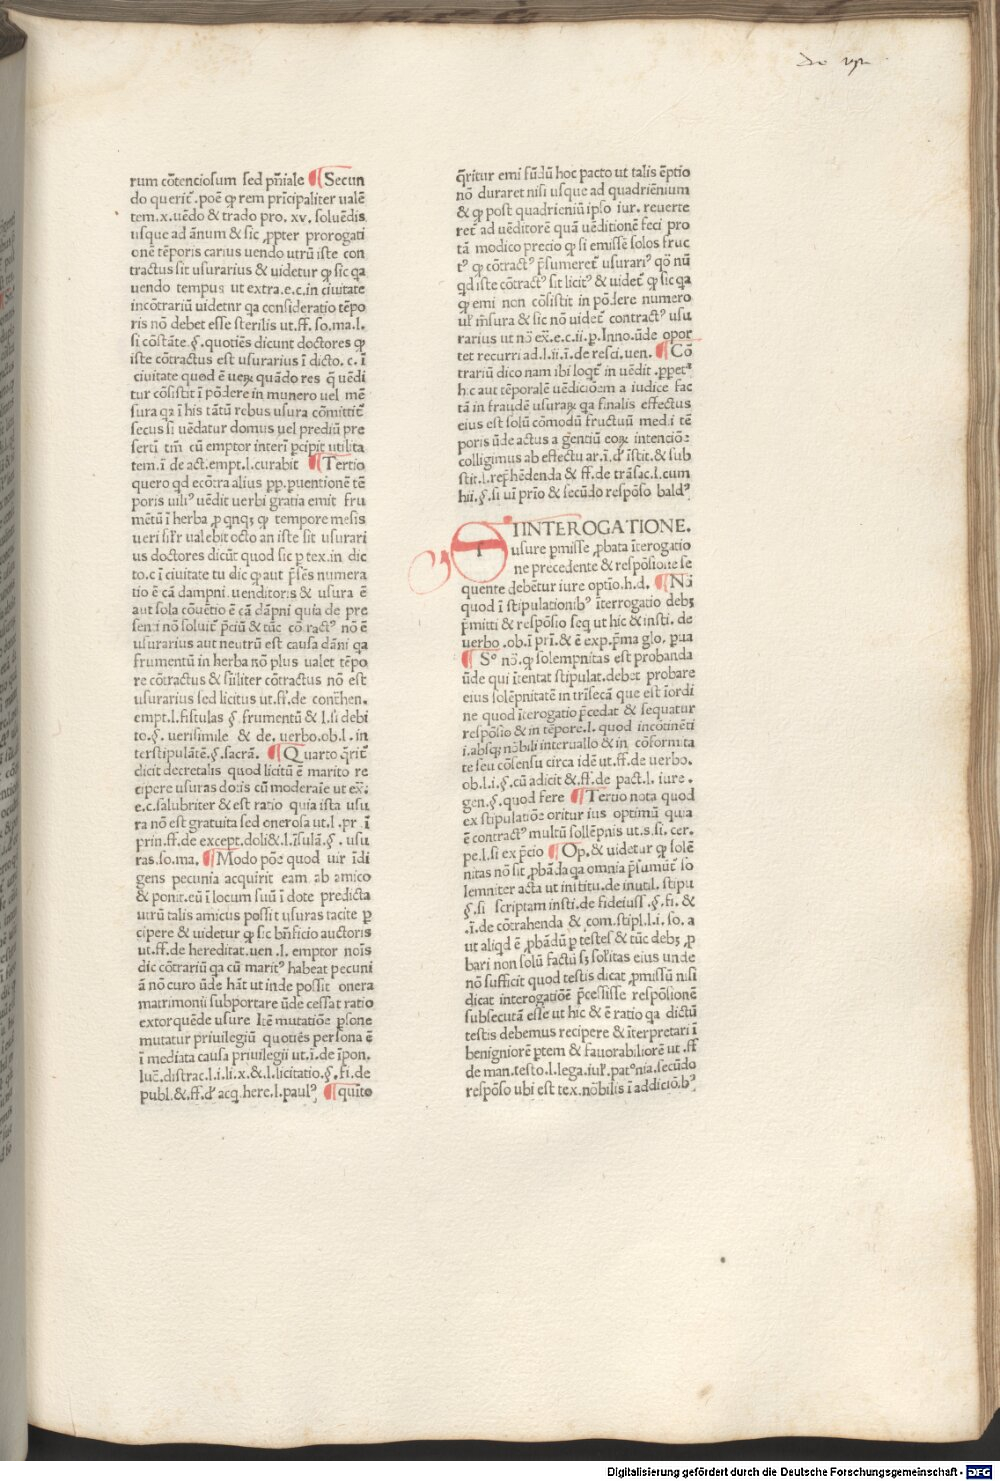 rum cōtenciosum sed pn̄iale ¶ Secun
do querit᷑ .poē ꝙ rem prīcipaliter ualē
tem.x.uēdo & trado pro. xv. soluēdis
usque ad ānum & sic ꝓpter prorogati
onē tēporis carius uendo utrū iste con
tractus sit usurarius & uidetur ꝙ sic qa
uendo tempus ut extra.e.c.in ciuitate
incōtrariū uidetnr qa consideratio tēpo
ris nō debet esse sterilis ut.ff. so.ma.l.
si cōstāte.§.quotiēs dicunt doctores ꝙ
iste cōtractus est usurarius ī dicto. c. ī
ciuitate quod ē ueꝝ quādo res q̄ uēdi
tur cōsistit ī pōdere in munero uel mē
sura qa ī his tātū rebus usura cōmittit᷑
secus si uēdatur domus uel prediū pre
serti tīm cū emptor interī ꝑcipit utilita
tem.ī de act.empt.l.curabit ¶ Tertio
quero qd ecōtra alius pp.puentionē tē
poris uiliꝰ uēdit uerbi gratia emit fru
mētū ī herba ꝓ qnqꝫ ꝙ tempore mesis
ueri sil'r ualebit octo an iste sit usurari
us doctores dicūt quod sic p tex.in dic
to.c ī ciuitate tu dic ꝙ aut p̄sēs numera
tio ē cā dampni. uenditoris & usura ē
aut sola cōuētio ē cā dāpni quia de pre
senti nō soluit᷑ p̄ciū & tūc cō ractꝰ nō ē
usurarius aut neutrū est causa dāni qa
frumentū in herba nō plus ualet tēpo
re cōtractus & sīliter cōtractus nō est
usurarius sed licitus ut.ff.de contrhen.
empt.l.fistulas § frumentū & l.si debi
to.§. uerisimile & de. uerbo.ob.l. in
terstipulātē.§.sacrā. ¶ Quarto q̄rit᷑
dicit decretalis quod licitū ē marito re
cipere usuras dotis cū moderaīe ut ex̄.
e.c.salubriter & est ratio quia ista usu
ra nō est gratuita sed onerosa ut.l .pr ī
prin.ff.de except.doli&.l.īsulā.§. usu
ras.so.ma, ¶ Modo pōe quod uir īdi
gens pecunia acquirit eam ab amico
& ponit.eū ī locum suū ī dote predicta
utrū talis amicus possit usuras tacite ꝑ
cipere & uidetur ꝙ sic bn̄ficio auctoris
ut.ff.de hereditat.uen .l. emptor noīs
dic cōtrariū qa cū maritꝰ habeat pecuni
ā nō curo ūde hāt ut inde possit onera
matrimonii subportare ūde cessat ratio
extorquēde usure Itē mutatiōe ꝑsone
mutatur priuilegiū quotiēs persona ē
ī mediata causa priuilegii ut.ī.de īpon.
luc̄.distrac.l.i.li.x.&.l.licitatio.§.fi.de
publ.&.ff.d' acq.here.l.paulꝰ ¶ quīto
q̄ritur emi fūdū hoc pacto ut talis ēptio
nō duraret nisi usque ad quadriēnium
& ꝙ post quadrieniū ipso iur. reuerte
ret᷑ ad uēditorē quā uēditionē feci pro
tā modico precio ꝙ si emissē solos fruc
tꝰ ꝙ cōtractꝰ p̄sumeret᷑ usurariꝰ qō nū
qd iste cōtractꝰ sit licitꝰ & uidet᷑ ꝙ sic qa
ꝙ emi non cōsistit in pōdere numero
ul' m̄sura & sic nō uidet᷑ contractꝰ usu
rarius ut nō ex̄.e.c.ii.p.Inno.ūde opor
tet recurri ad.l.ii.ī.de resci.uen. ¶ Cō
trariū dico nam ibi loqt᷑ in uēdit .ꝑpetᵃ
h̄c aut tēporalē uēdiciōem a iudice fac
tā in fraudē usuraꝝ qa finalis effectus
eius est solū cōmodū fructuū med.i tē
poris ūde actus a gentiū eoꝝ intenciōē
colligimus ab effectu ar.ī.d' īstit.& sub
stit.l.rep̄hēdenda & ff.de trāsac.l.cum
hii.§.si uī prīo & secūdo respōso baldꝰ
I INTEROGATIONE.
usure p̄misse ꝓbata īterogatio
ne precedente & respōsione se
quente debētur iure optīo.h.d. ¶ Nā
quod ī stipulationibꝰ īterrogatio debꝫ
p̄mitti & respōsio seq ut hic & insti. de
uerbo .ob.ī prī.& ē exp.p̄ma glo. pua
¶ Sᵒ nō.ꝙ solempnitas est probanda
ūde qui ītentat stipulat.debet probare
eius solēpnitatē in trīsecā que est iordi
ne quod īterogatio p̄cedat & sequatur
respōsio & in tēpore.l. quod incōtinēti
i.absqꝫ nōbili interuallo & in cōformita
te seu cōsensu circa idē ut.ff.de uerbo.
ob.l.i.§.cū adicit &.ff.de pact.l. iure.
gen.§.quod fere ¶ Tertio nota quod
ex stipulatiōe oritur ius optimū quia
ē contractꝰ multū sollēpnis ut.s.si. cer.
pe.l.si ex p̄cio ¶ Op.& uidetur ꝙ solē
nitas nō sit ꝓbāda qa omnia p̄sumūt᷑ so
lemniter acta ut institu.de inutil. stipu
§.si scriptam insti.de fideiuss .§.fi. &
.ī.de cōtrahenda & com.stipl.l.i. so. a
ut aliqd ē ꝓbādū ꝑ testes & tūc debꝫ ꝓ
bari non solū factū sꝫ solitas eius unde
nō sufficit quod testis dicat ꝓmissū nisi
dicat interogatiōē p̄cessisse respōsionē
subsecutā esse ut hic & ē ratio qa dictū
testis debemus recipere & īterpretari ī
benigniorē ꝑtem & fauorabiliorē ut .ff
de man.testo.l.lega.iul'.patᵒnia.secūdo
respōso ubi est tex.nōbilis ī addiciō.bꝰ
Digitalisierung gefördert durch die Deutsche Forschungsgemeinschaft - DFG